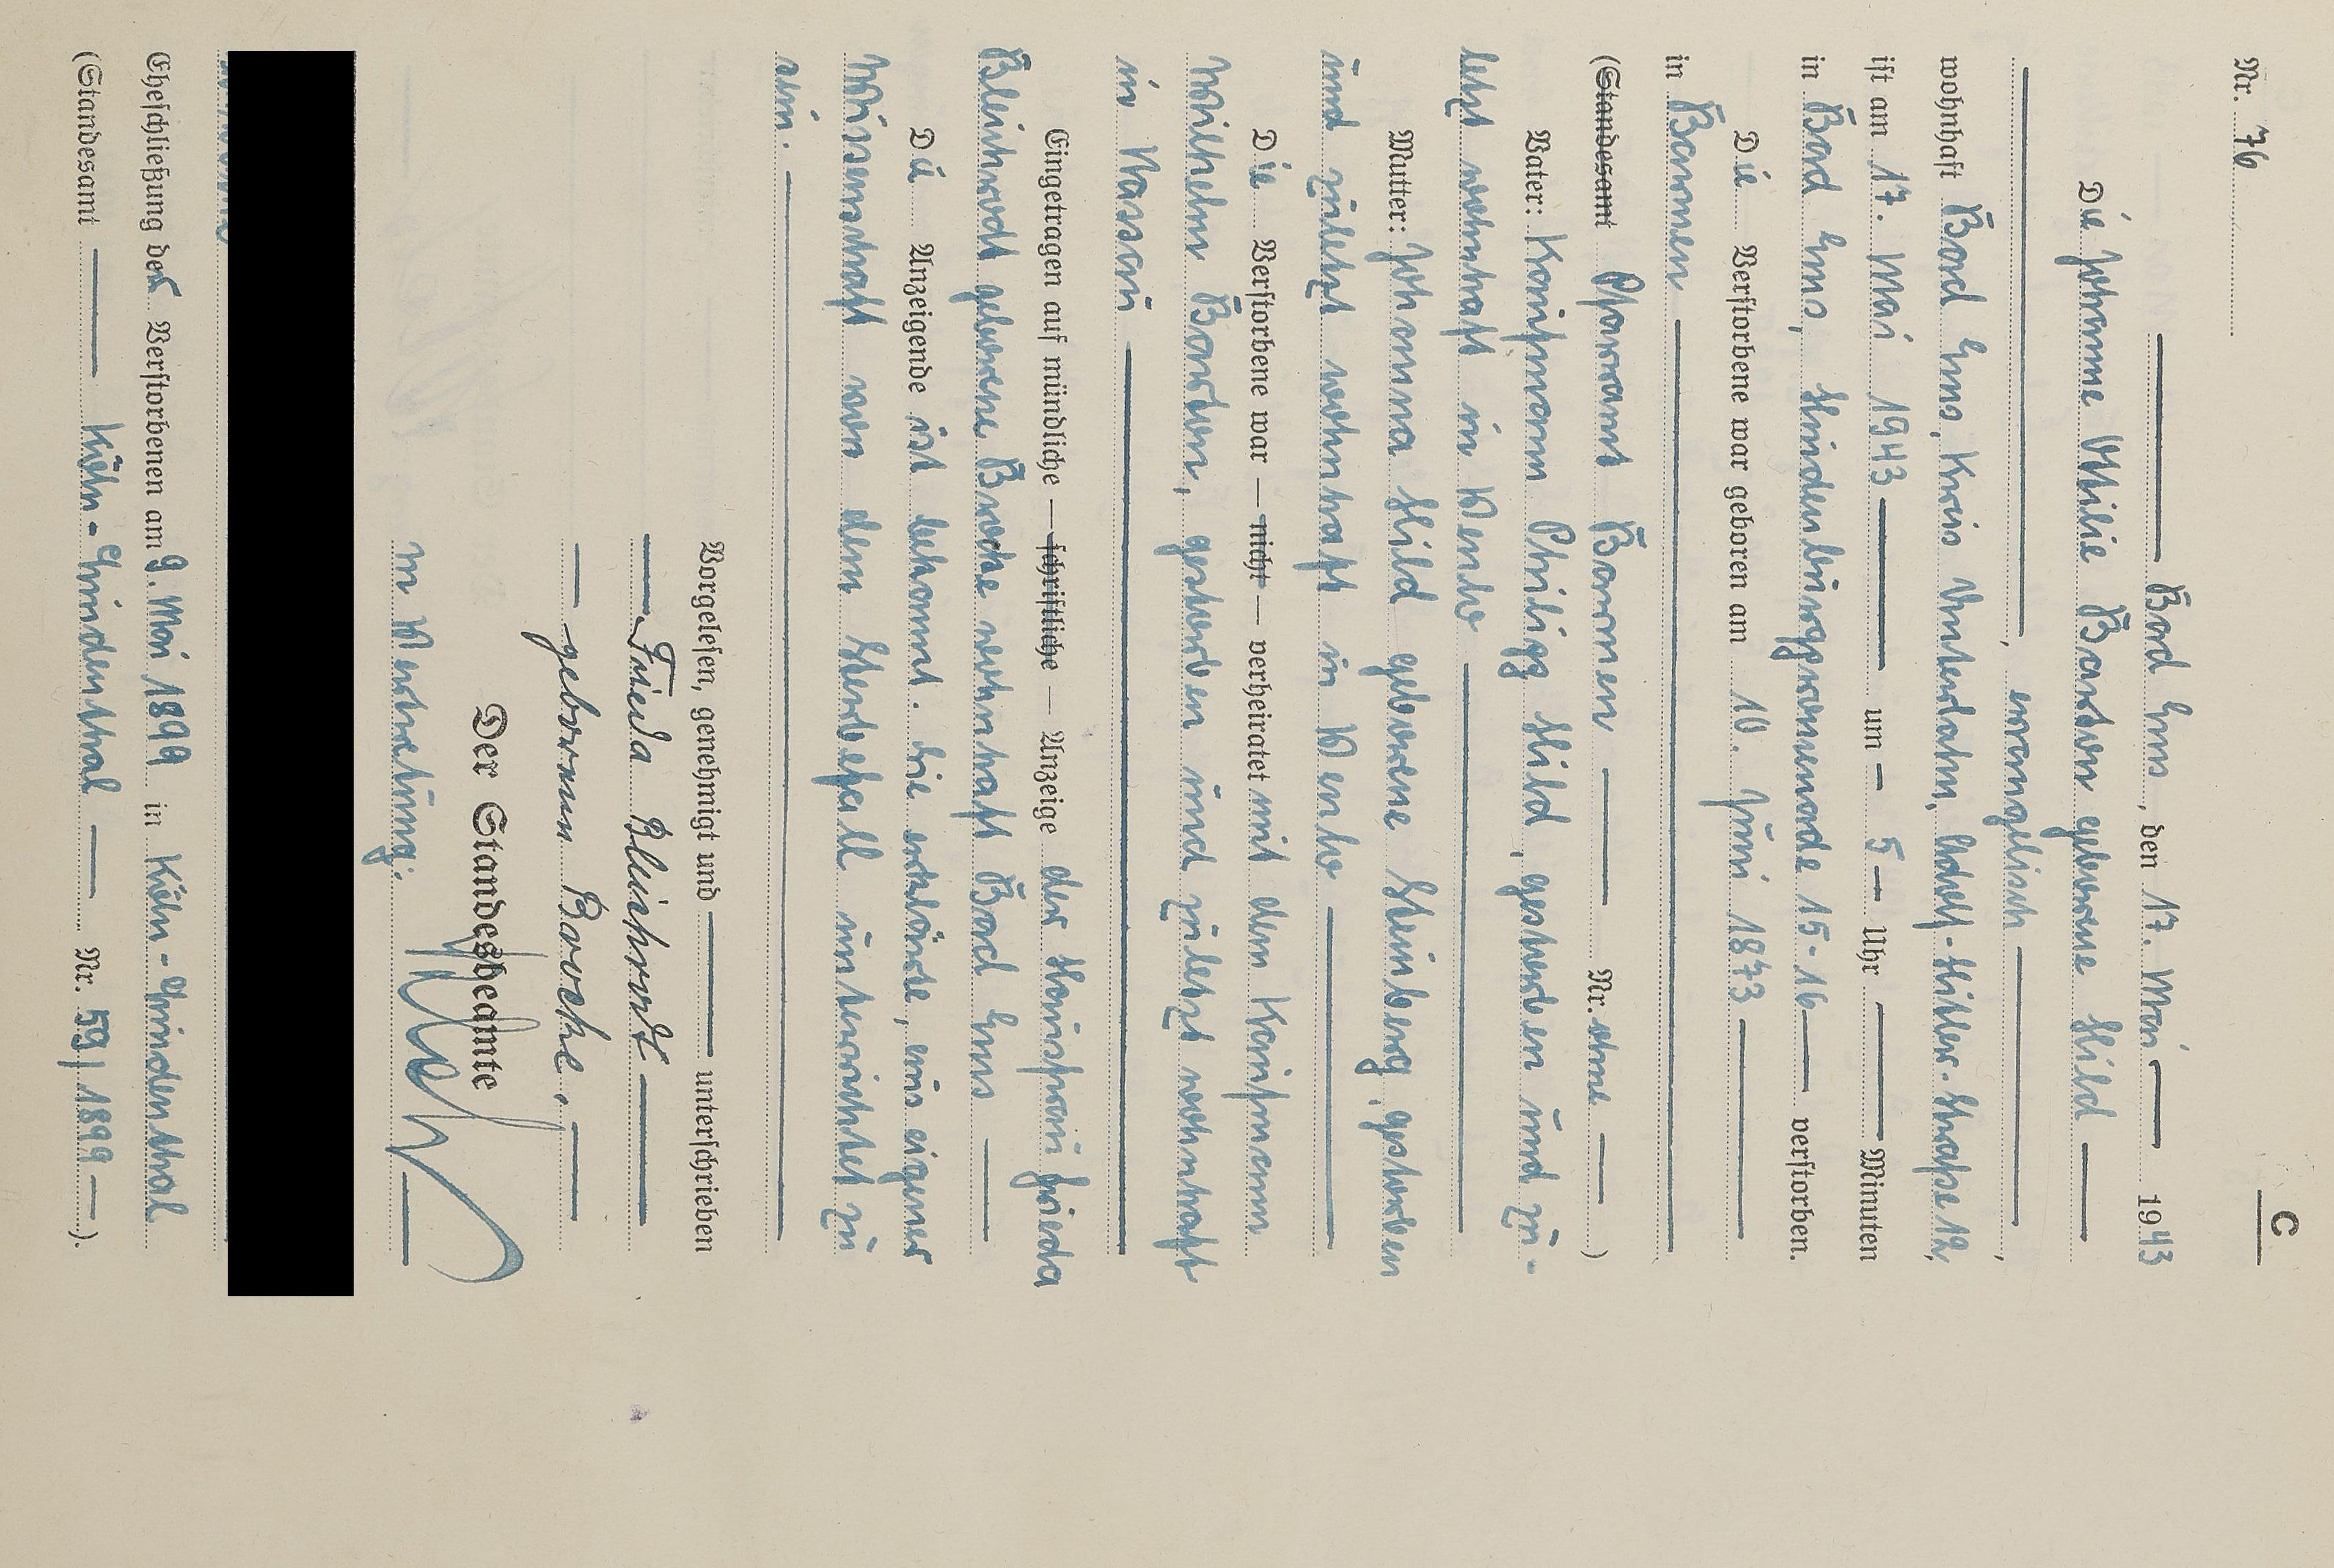 C
Nr. 76
Bad Ems, den 17. Mai 1943
Die Johanne Ottilie Barden geborene Hild
, evangelisch,
wohnhaft Bad Ems, Kreis Unterlahn, Adolf-Hitler-Straße 12,
ist am 17. Mai 1943 um - 5 - Uhr Minuten
in Bad Ems, Hindenburgpromenade 15-16 verstorben.
Die Verstorbene war geboren am 10. Juni 1873
in Barmen
(Standesamt Pfarramt Barmen Nr. ohne)
Vater: Kaufmann Philipp Hild, gestorben und zu-
letzt wohnhaft in Venlo
Mutter: Johanna Hild geborene Steinberg, gestorben
und zuletzt wohnhaft in Venlo
Die Verstorbene war — nicht — verheiratet mit dem Kaufmann
Wilhelm Barden, gestorben und zuletzt wohnhaft
in Nassau
Eingetragen auf mündliche — schriftliche — Anzeige der Hausfrau Frieda
Bleichrodt geborene Broche wohnhaft Bad Ems
Die Anzeigende ist bekannt. Sie erklärte, aus eigener
Wissenschaft von dem Sterbefall unterrichtet zu
sein.
Vorgelesen, genehmigt und unterschrieben
Frieda Bleichrodt
geborenen
Der Standesbeamte
In Vertretung:
Eheschließung der Verstorbenen am 9. Mai 1899 in Köln-Lindenthal
(Standesamt Köln-Lindenthal Nr. 59/1899).